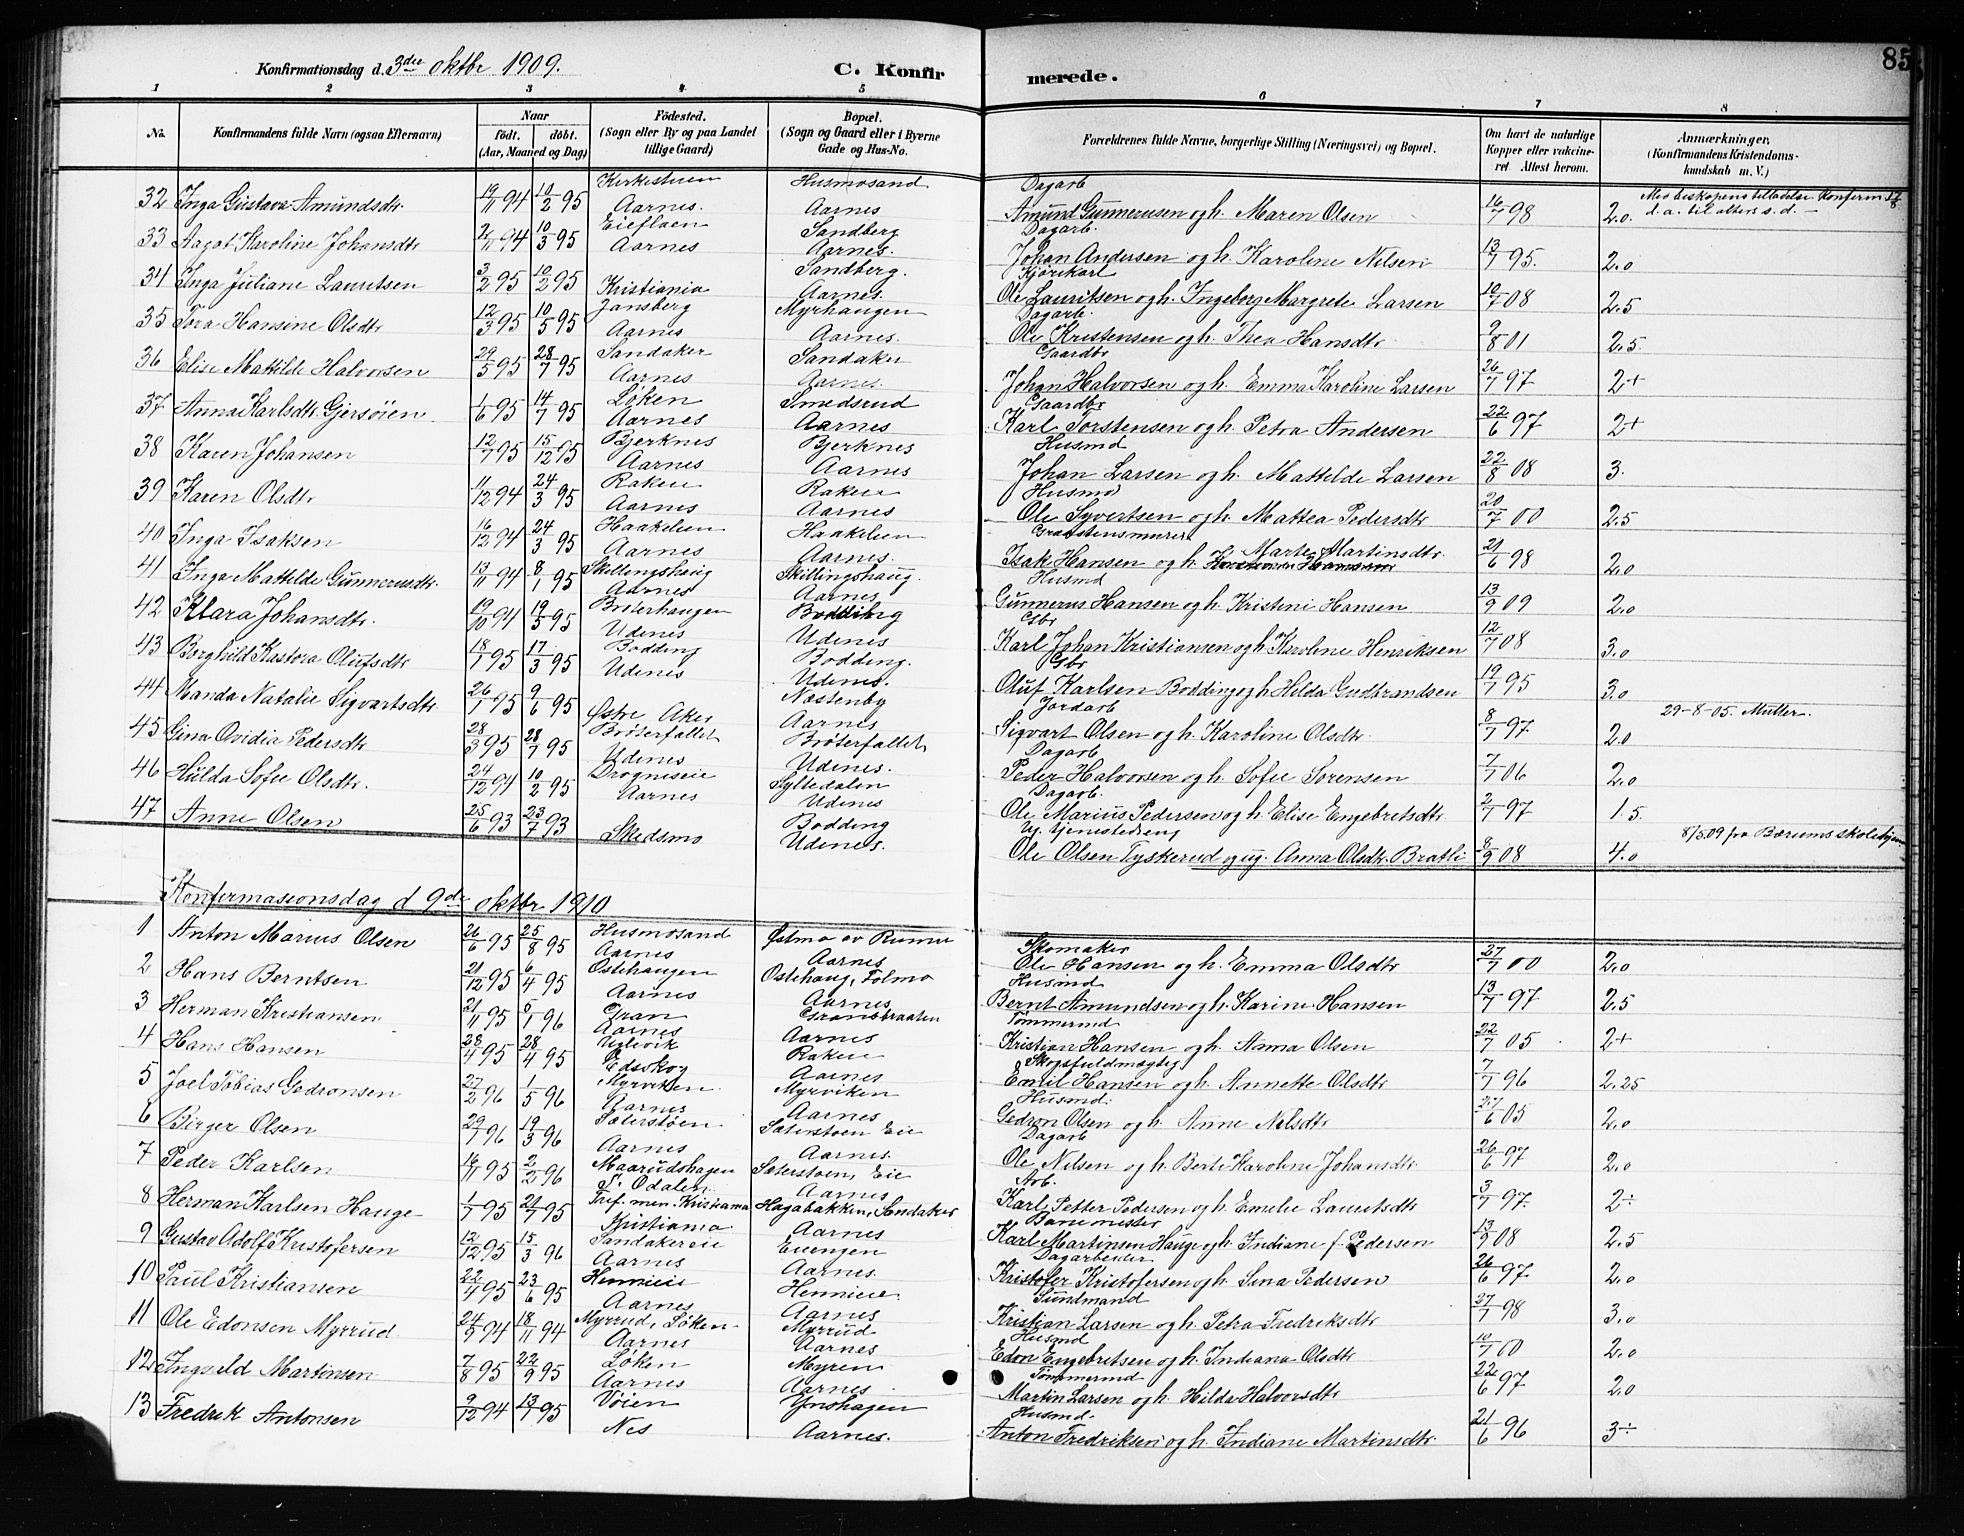 85
Konfirmationsdag d. 3die oktbr 1909. C. Konfirmerede.
1 2 3 4 5 6 7 8
No. Konfirmandens fulde Navn (ogsaa Efternavn) Naar födt. döbt. (Aar, Maaned og Dag) Födested. (Sogn eller By og paa Landet tillige Gaard) Bopæl. (Sogn og Gaard eller i Byerne Gade og Hus-No. Forældrenes fulde Navne, borgerlige Stilling (Næringsvei) og Bopæl. Om havt de naturlige Kopper eller vakcineret. Attest herom. Anmærkninger, (Konfirmandens Kristendomskundskab m. V.)
32 Inga Gustava Amundsdtr. 19/11 94 10/2 95 Kirkestuen Aarnes. Husmosand Aarnes Dagarb Amund Gunnerusen og h. Maren Olsen 16/7 98 2.0 Med biskopens tilladelse Konfirm 17/8 d.a. til alters s.d. –
33 Aagot Karoline Johansdtr 2/11 94 10/3 95 Eiefloen Aarnes Sandberg Aarnes. Dagarb. Johan Andersen og h. Karoline Nilsen 13/7 95. 2.0
34 Inga Juliane Lauritsen 3/2 95 10/2 95 Kristiania Sandberg. Aarnes. Kjörekarl Ole Lauritsen og h. Ingeborg Margrete Larsen 10/7 08 2.5
35 Tora Hansine Olsdtr 12/3 95 10/5 95 Jansberg Aarnes Myrhaugen Aarnes. Dagarb. Ole Kristensen og h. Thea Hansdtr 9/8 01 2.5
36 Elise Mattilde Halvorsen 29/5 95 28/7 95 Sandaker Aarnes Sandaker Aarnes. Gaardbr Johan Halvorsen og h. Emma Karoline Larsen 26/7 97 2+
37 Anna Karlsdtr. Gjersöien 1/6 95 14/7 95 Löken Aarnes Smedsrud Aarnes Gaardbr Karl Torstensen og h. Petra Andersen 22/6 97 2+
38 Karen Johansen 12/7 95 15/12 95 Bjerknes Aarnes Bjerknes Aarnes Husmd Johan Larsen og h. Mattilde Larsen 22/8 08 3.
39 Karen Olsdtr 11/12 94 24/3 95 Rakeie Aarnes Rakeie Aarnes Husmd Ole Syvertsen og h. Mattea Pedersdtr 20/7 00 2.5
40 Inga Isaksen 16/12 94 24/3 95 Haakelien Aarnes Haakelien Aarnes. Graastensmurer Isak Hansen og h. Marte Martinsdtr. 21/6 98 2.0
41 Inga Mattilde Gunnerusdtr. 13/11 94 8/1 95 Skillingshaug Aarnes Skillingshaug. Aarnes. Husmd Gunnerus Hansen og h. Kristine Hansen 13/9 09 2.0
42 Klara Johansdtr. 19/10 94 19/5 95 Bröterhaugen Udenes Bodding Udenes Gbr Karl Johan Kristiansen og h. Karoline Henriksen 12/7 08 3.0
43 Borghild Kastora Olufsdtr 18/1 95 17/3 95 Bodding Udenes Bodding. Udenes. Gbr Oluf Karlsen Bodding og h Hilda Gudbrandsen 19/7 95 3.0
44 Manda Natalie Sigvartsdtr. 26/1 95 9/6 95 Østre Aker Næstenby Aarnes Jordarb Sigvart Olsen og h. Karoline Olsdtr. 8/7 97 2.0 29-8-05. Müller.
45 Gina Ovidia Pedersdtr 28/3 95 28/7 95 Brøterfallet Udenes Brøterfallet Udenes. Dagarb Peder Halvorsen og h. Sofie Sørensen 7/7 06 2.0
46 Hulda Sofie Olsdtr. 24/12 94 10/2 95 Drogneseie Aarnes Syltedalen Udenes Dagarb. Ole Marius Pedersen og h. Elise Engebretsdtr. 2/7 97 1.5
47 Anne Olsen 25/6 93 23/7 93 Skedsmo Bodding Udenes. Ug. tjenestedreng Ole Olsen Tyskerud og ug. Anna Olsdtr. Bratli 8/9 08 4.0 8/5.09 fra Bærums skolehjem
Konfermasionsdag d 9de oktbr 1910
1 Anton Marius Olsen 26/6 95 25/8 95 Husmosand Aarnes Østmo av Runni Aarnes Skomaker Ole Hansen og h. Emma Olsdtr 27/7 00 2.0
2 Hans Berntsen 21/12 95 6/4 95 Ostehaugen Aarnes Ostehaug, Folmo Aarnes Husmd Bernt Amundsen og h. Karine Hansen 13/7 97 2.5
3 Herman Kristiansen 21/11 95 5/1 96 Gran Aarnes Granbraaten Aarnes Tømmermd Kristian Hansen og h. Anna Olsen 22/7 05 2+
4 Hans Hansen 28/4 95 28/4 95 Uglvik Edsskog Rakeie Aarnes Skogsfuldmægtig Emil Hansen og h. Annette Olsdtr 7/7 96 2.25
5 Joel Tobias Gedronsen 27/2 96 1/5 96 Myrviken Aarnes Myrviken Aarnes Husmd. Gedron Olsen og h. Anne Nilsdtr 27/6 05 2.0
6 Birger Olsen 29/1 96 19/3 96 Sæterstøen Aarnes Sæterstøen Eie Aarnes. Dagarb Ole Nilsen og h. Berte Karoline Johansdtr. 26/6 97 2.0
7 Peder Karlsen 16/11 95 2/2 96 Maarudshagen S. Odalen Sæterstøen, Eie Aarnes Arb. Karl Petter Pedersen og h. Emelie Lauritsdtr 3/7 97. 2÷
8 Herman Karlsen Hauge 1/7 95 21/7 95 Tref. men. Kristiania Kristiania Hagabakken, Sandaker Aarnes Banemester Karl Martinsen Hauge og h. Indiane f. Pedersen 13/9 08 2.5
9 Gustav Adolf Kristofersen 12/12 95 15/3 96 Sandakereie Aarnes Euengen Aarnes. Dagarbeider Kristofer Kristofersen og h. Lina Pedersen 26/6 97 2.0
10 Paul Kristiansen 22/4 95 23/6 95 Hennieie Aarnes Hennieie. Aarnes Sundmand Kristian Larsen og h. Petra Fredriksdtr 27/7 98 3.0
11 Ole Edonsen Myrrud 24/9 94 18/11 94 Myrrud, Løken Aarnes Myrrud Aarnes Husmd Edon Engebretsen og h. Indiana Olsdtr 10/7 00 2.0
12 Ingvald Martinsen 7/8 95 22/9 95 Løken Aarnes Myren Aarnes Tømmermd Martin Larsen og h. Hilda Halvorsdtr 22/6 97 2.0
13 Fredrik Antonsen 9/12 94 13/1 95 Vöien Nes Ynshagen Aarnes. Husmd. Anton Fredriksen og h. Indiane Martinsdtr. 21/6 96 3÷